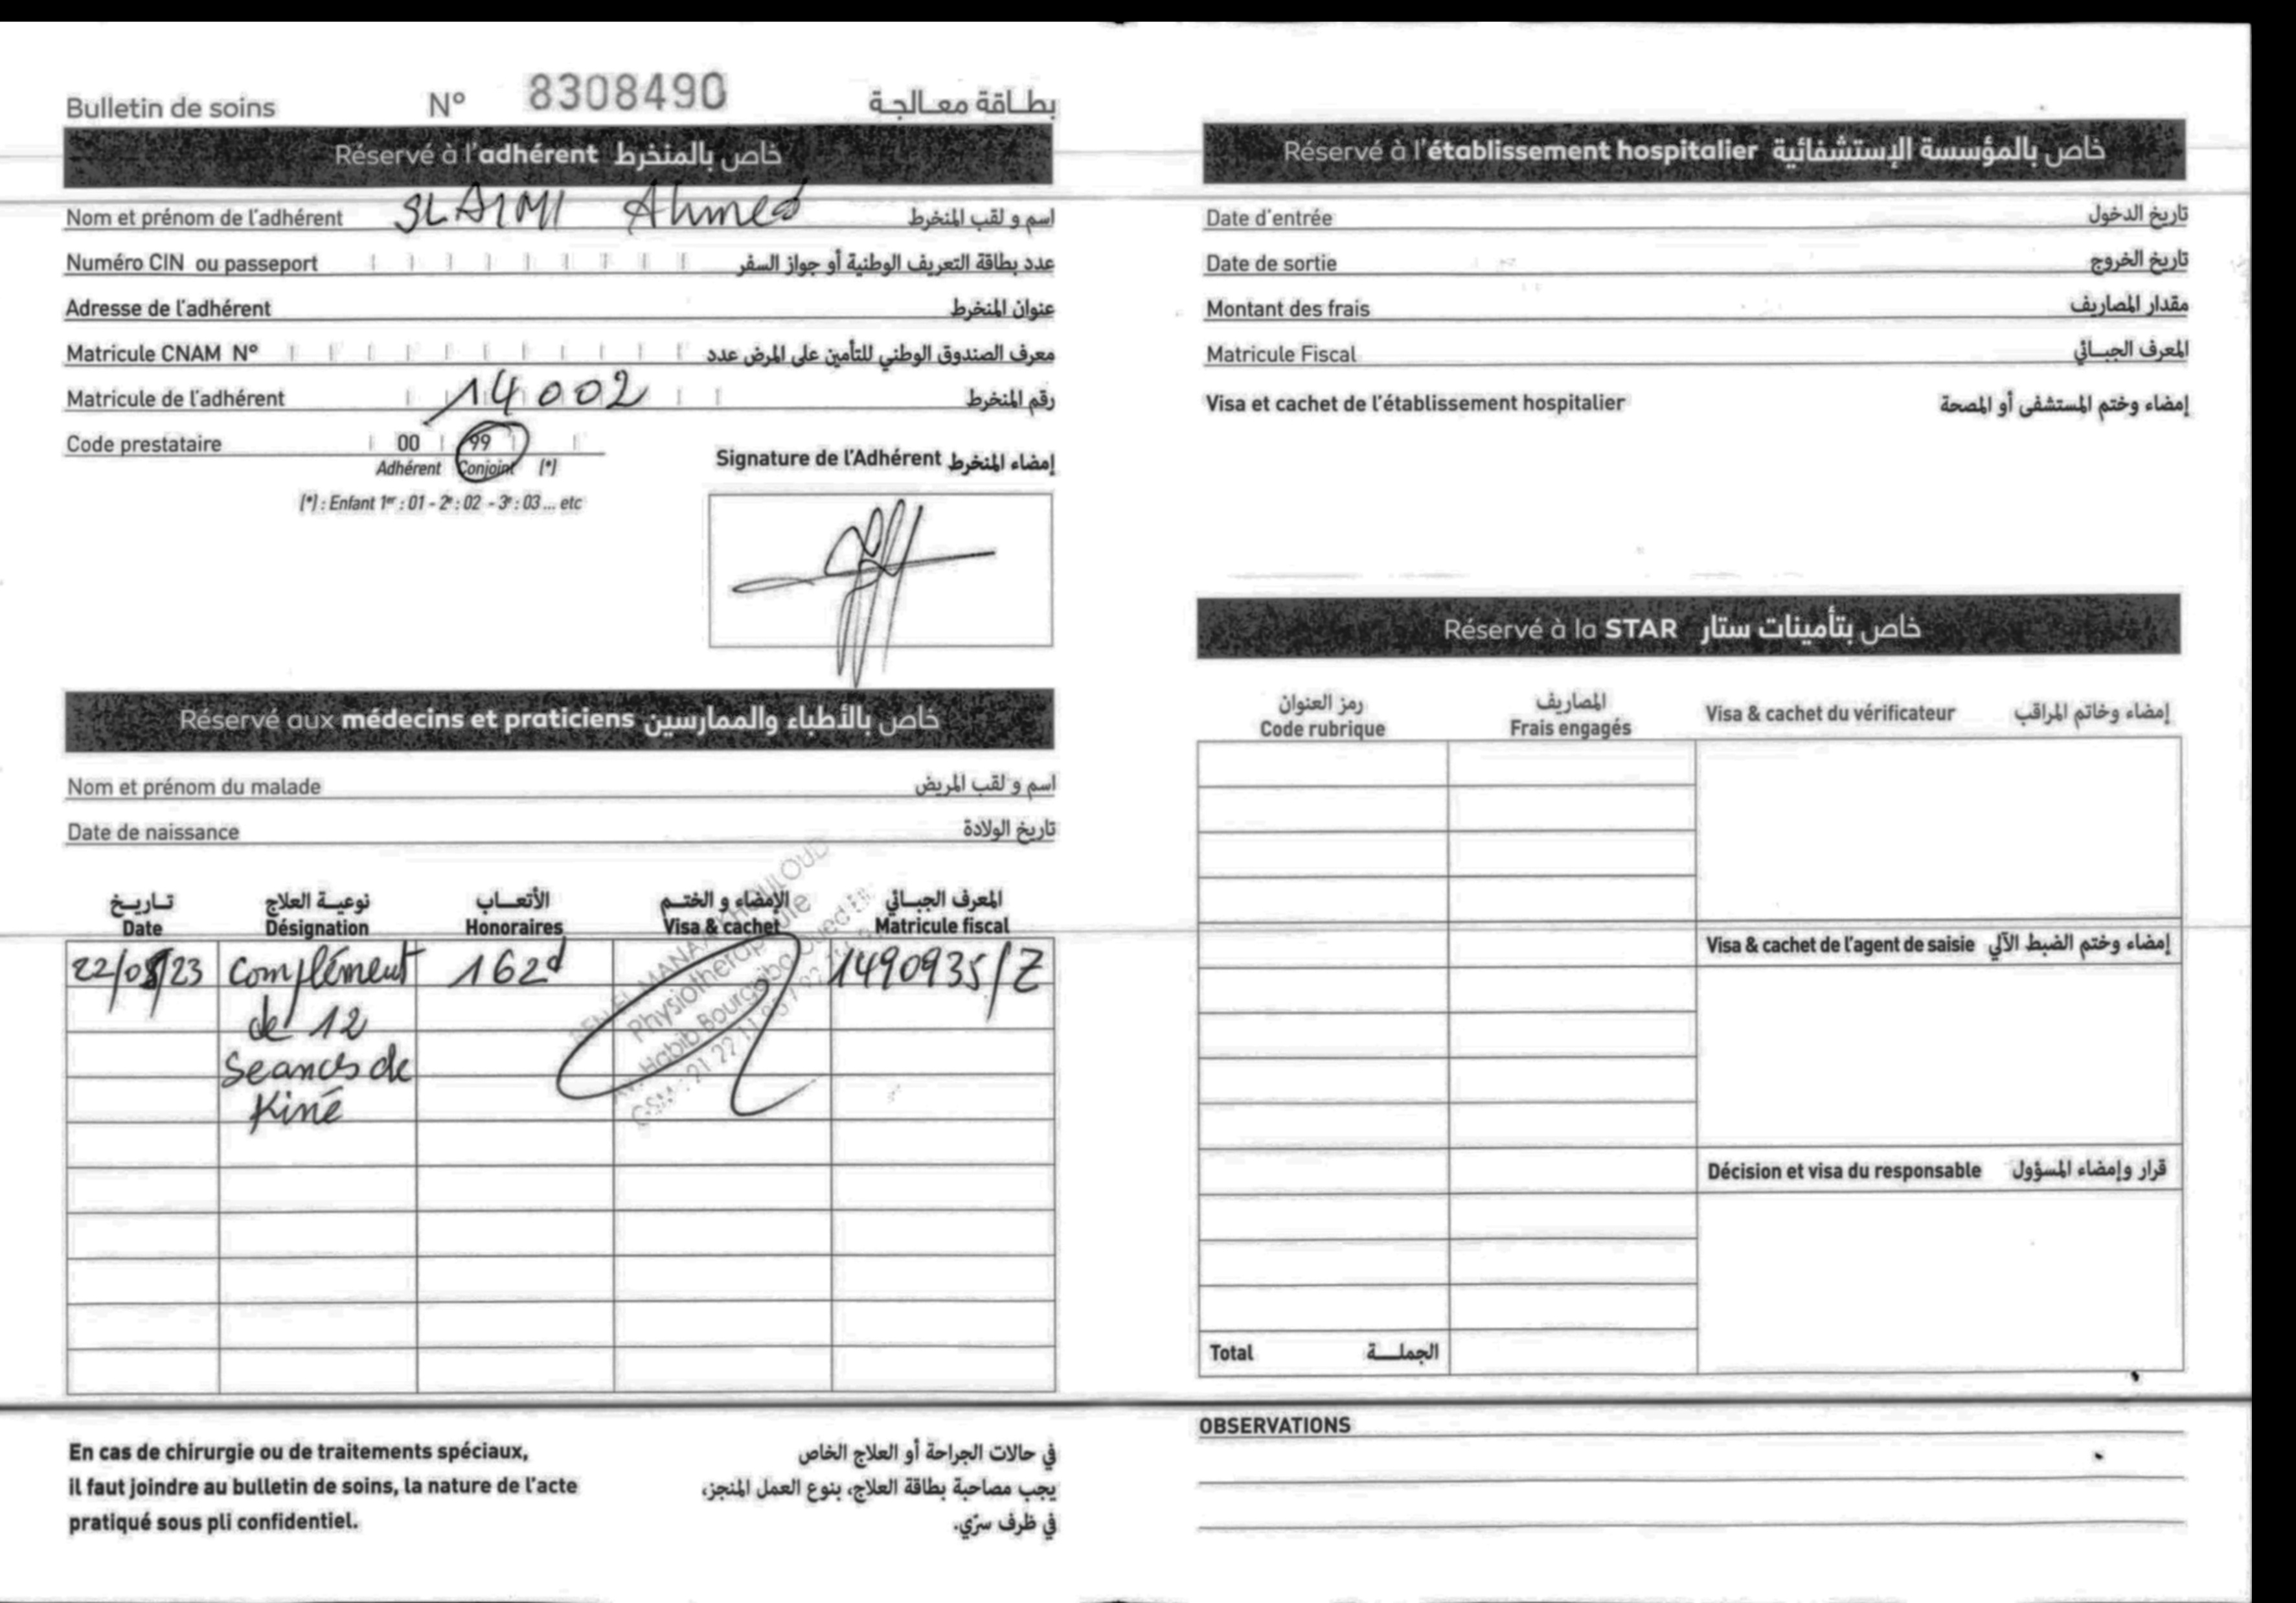 Bulletin de soins N° 8308490 بطاقة معالجة
Réservé à l'adhérent خاص بالمنخرط
Nom et prénom de l'adhérent SLAIMI Ahmed اسم و لقب المنخرط
Numéro CIN ou passeport عدد بطاقة التعريف الوطنية أو جواز السفر
Adresse de l'adhérent عنوان المنخرط
Matricule CNAM N° معرف الصندوق الوطني للتأمين على المرض عدد
Matricule de l'adhérent 14002 رقم المنخرط
Code prestataire 00 99
Adhérent Conjoint (*)
(*) : Enfant 1er : 01 - 2e : 02 - 3e : 03 ... etc
Signature de l'Adhérent إمضاء المنخرط
Réservé aux médecins et praticiens خاص بالأطباء والممارسين
Nom et prénom du malade اسم و لقب المريض
Date de naissance تاريخ الولادة
تاريخ نوعية العلاج الأتعاب الإمضاء و الختم المعرف الجبائي
Date Désignation Honoraires Visa & cachet Matricule fiscal
22/08/23 Complément 162d 1490935/Z
de 12
Seances de
Kiné
KHOULOUD
Physiothérapeute
Habib Bourguiba Oued
GSM : 21 22
En cas de chirurgie ou de traitements spéciaux,
il faut joindre au bulletin de soins, la nature de l'acte
pratiqué sous pli confidentiel.
في حالات الجراحة أو العلاج الخاص
يجب مصاحبة بطاقة العلاج، بنوع العمل المنجز،
في ظرف سرّي.
Réservé à l'établissement hospitalier خاص بالمؤسسة الإستشفائية
Date d'entrée تاريخ الدخول
Date de sortie تاريخ الخروج
Montant des frais مقدار المصاريف
Matricule Fiscal المعرف الجبائي
Visa et cachet de l'établissement hospitalier إمضاء وختم المستشفى أو المصحة
Réservé à la STAR خاص بتأمينات ستار
رمز العنوان المصاريف
Code rubrique Frais engagés Visa & cachet du vérificateur إمضاء وخاتم المراقب
Visa & cachet de l'agent de saisie إمضاء وختم الضبط الآلي
Décision et visa du responsable قرار وإمضاء المسؤول
Total الجملة
OBSERVATIONS